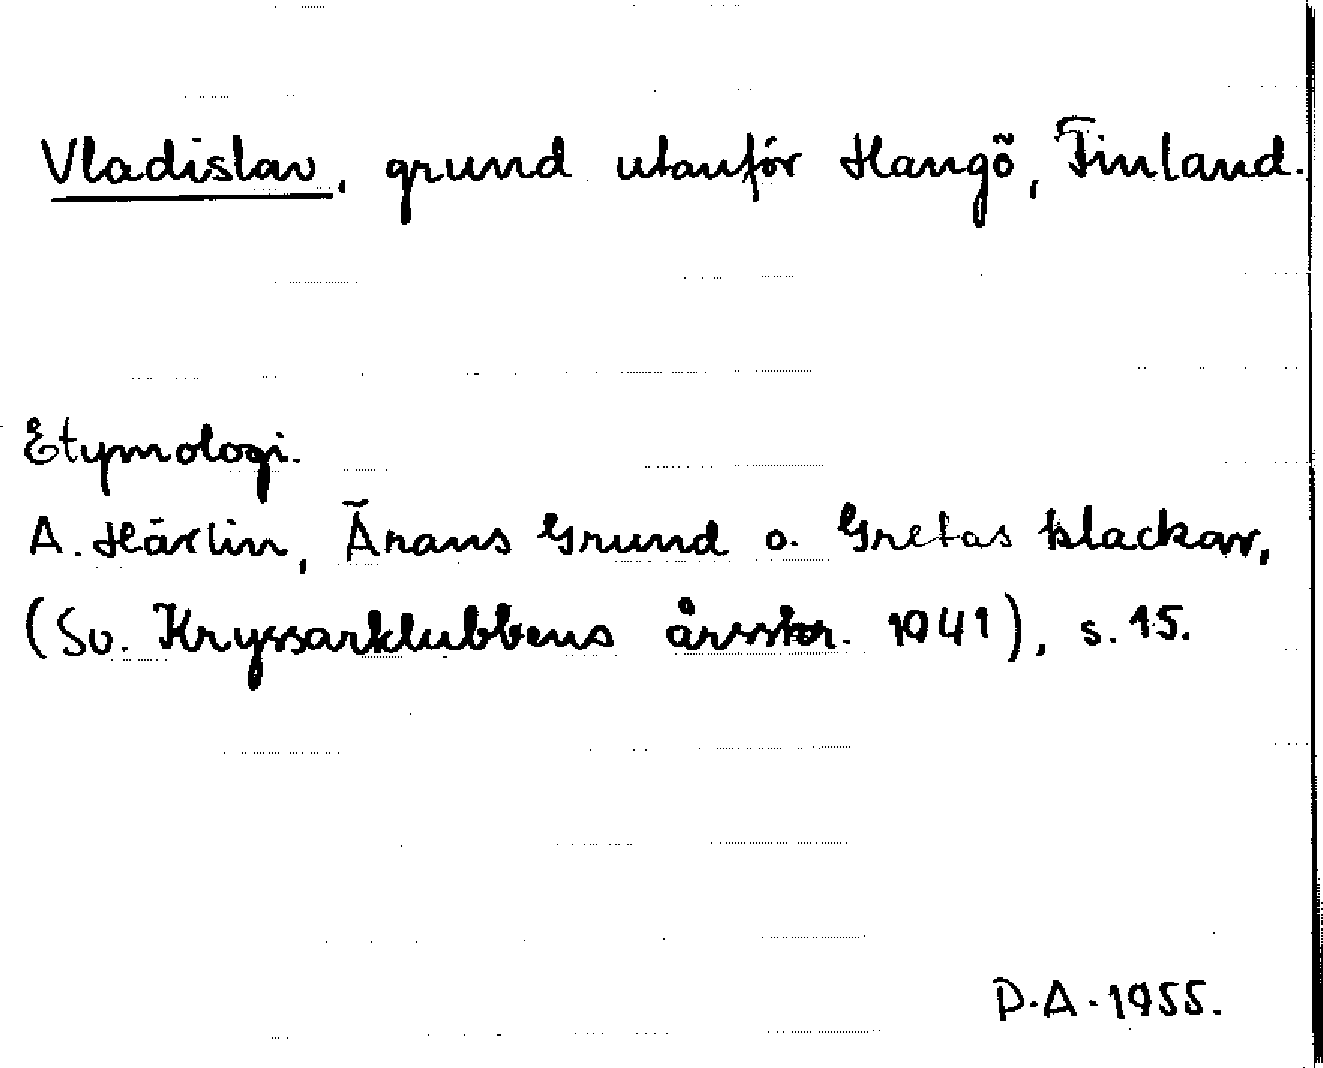 Vladislav, grund utanför Hangö, Finland.
Etymologi.
A. Härlin, Ärans Grund o. Gretas klackar,
(Sv. Kryssarklubbens årsskr. 1941), s. 15.
P.A. 1955.